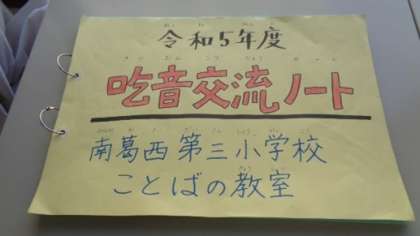 令和5年度
吃音交流ノート
南葛西第三小学校
ことばの教室